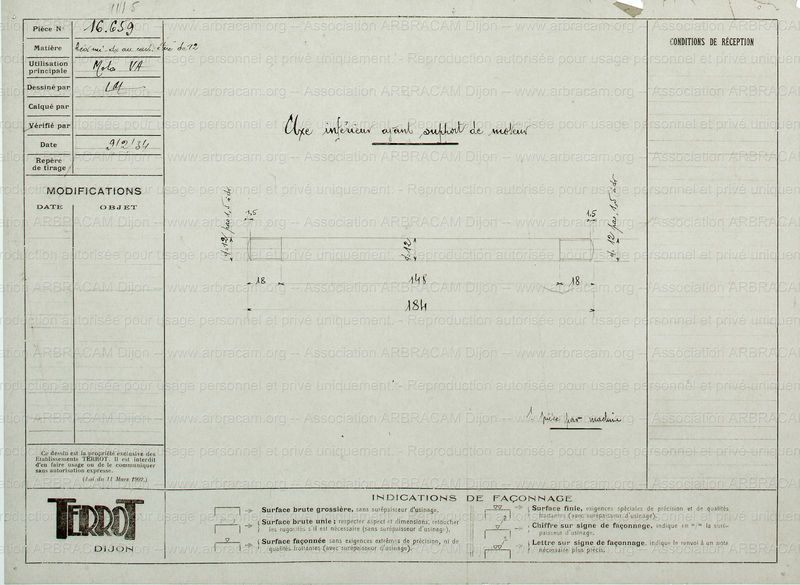 1115
Pièce N° 16.659
Matière
Utilisation principale Moto VA
Dessiné par LM
Calqué par
Vérifié par
Date 9/2/34
Repère de tirage
MODIFICATIONS
DATE OBJET
CONDITIONS DE RÉCEPTION
Axe inférieur avant support de moteur
1,5
1,5
φ 12 pas 1,5 à dr.
φ 12
φ 12 pas 1,5 à dr.
18
148
18
184
1 pièce par machine
Ce dessin est la propriété exclusive des
Etablissements TERROT. Il est interdit
d'en faire usage ou de le communiquer
sans autorisation expresse.
(Loi du 11 Mars 1902.)
TERROT
DIJON
INDICATIONS DE FAÇONNAGE
Surface brute grossière, sans surépaisseur d'usinage.
Surface brute unie ; respecter aspect et dimensions, retoucher
les rugosités s'il est nécessaire (sans surépaisseur d'usinage).
Surface façonnée sans exigences extrêmes de précision, ni de
qualités frottantes (avec surépaisseur d'usinage).
Surface finie, exigences spéciales de précision et de qualités
frottantes (avec surépaisseur d'usinage).
Chiffre sur signe de façonnage, indique en m/m la surépaisseur d'usinage.
Lettre sur signe de façonnage, indique le renvoi à un note
nécessaire plus précis.
www.arbracam.org -- Association ARBRACAM Dijon -- www.arbracam.org -- Association ARBRACAM Dijon
Reproduction autorisée pour usage personnel et privé uniquement. - Reproduction autorisée pour usage personnel et privé uniquement.